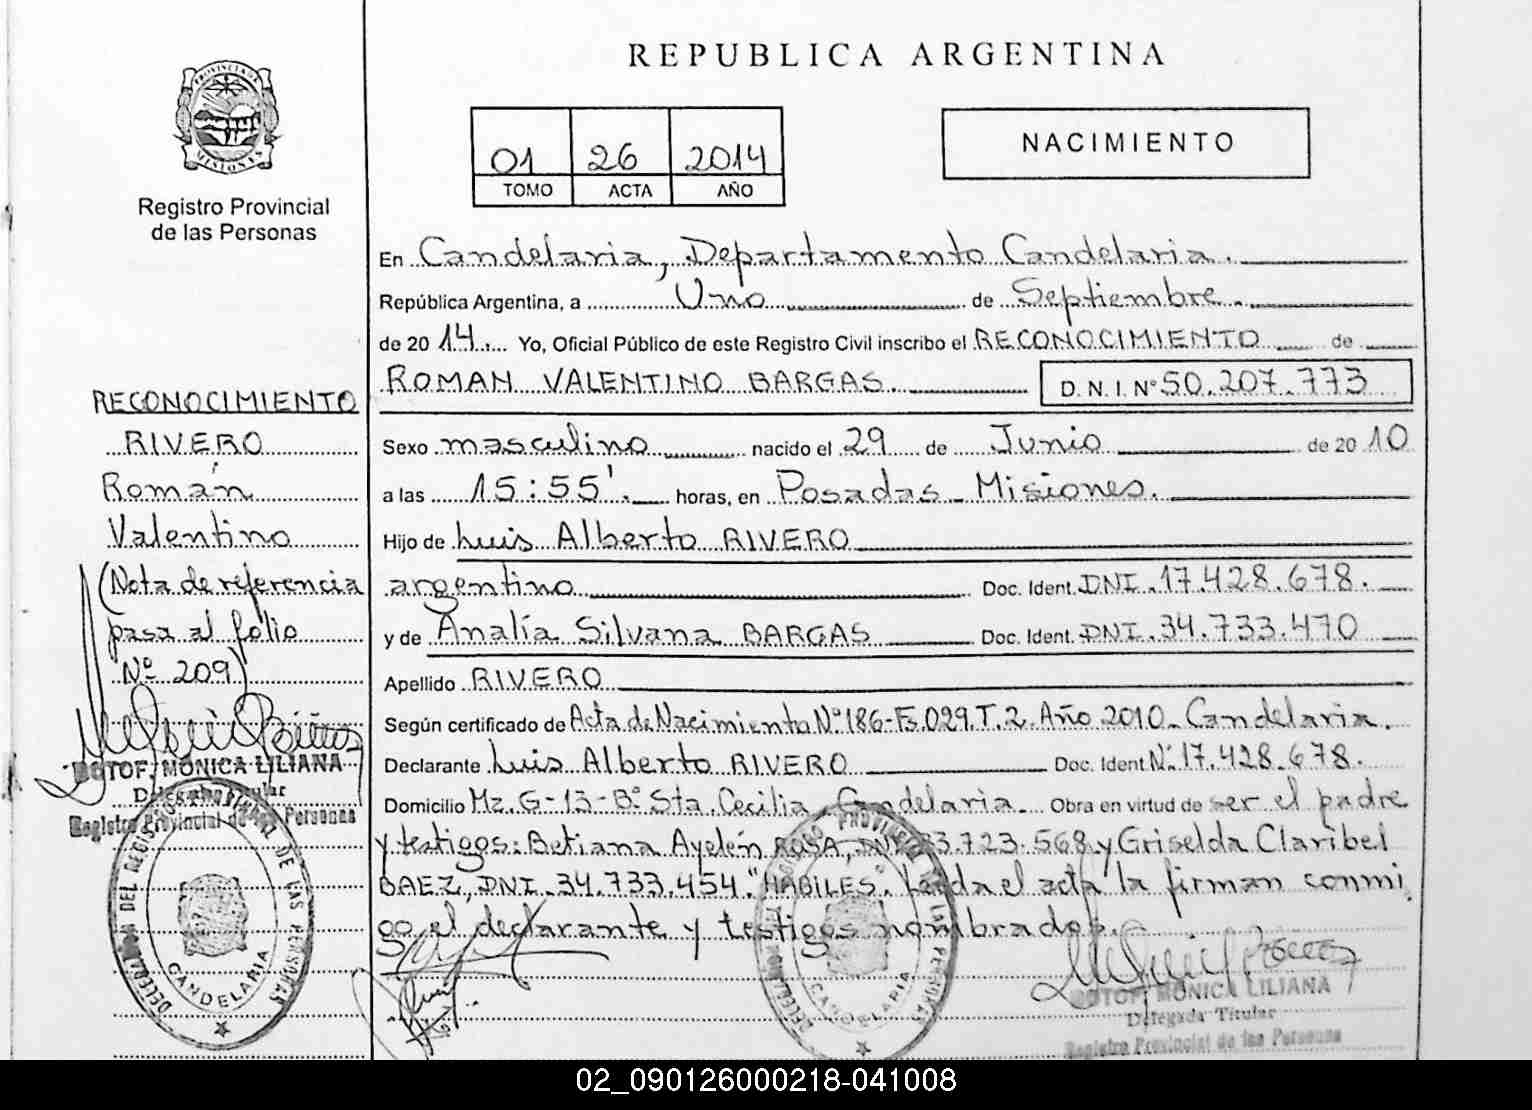 REPUBLICA ARGENTINA
PROVINCIA DE
MISIONES
Registro Provincial
de las Personas
01 26 2014
TOMO ACTA AÑO
NACIMIENTO
En Candelaria, Departamento Candelaria.
República Argentina, a Uno de Septiembre
de 2014 Yo, Oficial Público de este Registro Civil inscribo el RECONOCIMIENTO de
ROMAN VALENTINO BARGAS. D. N. I. Nº 50.207.773
Sexo masculino nacido el 29 de Junio de 2010
a las 15:55'. horas, en Posadas - Misiones.
Hijo de Luis Alberto RIVERO
argentino Doc. Ident. DNI. 17.428.678.
y de Analía Silvana BARGAS Doc. Ident. DNI. 34.733.470
Apellido RIVERO
Según certificado de Acta de Nacimiento Nº 186-Fs.029.T.2.Año 2010-Candelaria.
Declarante Luis Alberto RIVERO Doc. Ident Nº 17.428.678.
Domicilio Mz.G-13-Bº Sta.Cecilia, Candelaria. Obra en virtud de ser el padre
y testigos: Betiana Ayelén ROSA, DNI 33.723.568 y Griselda Claribel
BAEZ, DNI. 34.733.454. "HABILES". Leída el acta la firman conmi
go el declarante y testigos nombrados.
RECONOCIMIENTO
RIVERO
Román
Valentino
(Nota de referencia
pasa al folio
Nº 209)
BOTOF, MÓNICA LILIANA
Delegada Titular
Registro Provincial de las Personas
DELEGACION DEL REGISTRO PROVINCIAL DE LAS PERSONAS
CANDELARIA
DELEGACION DEL REGISTRO PROVINCIAL DE LAS PERSONAS
CANDELARIA
BOTOF, MÓNICA LILIANA
Delegada Titular
Registro Provincial de las Personas
02_090126000218-041008